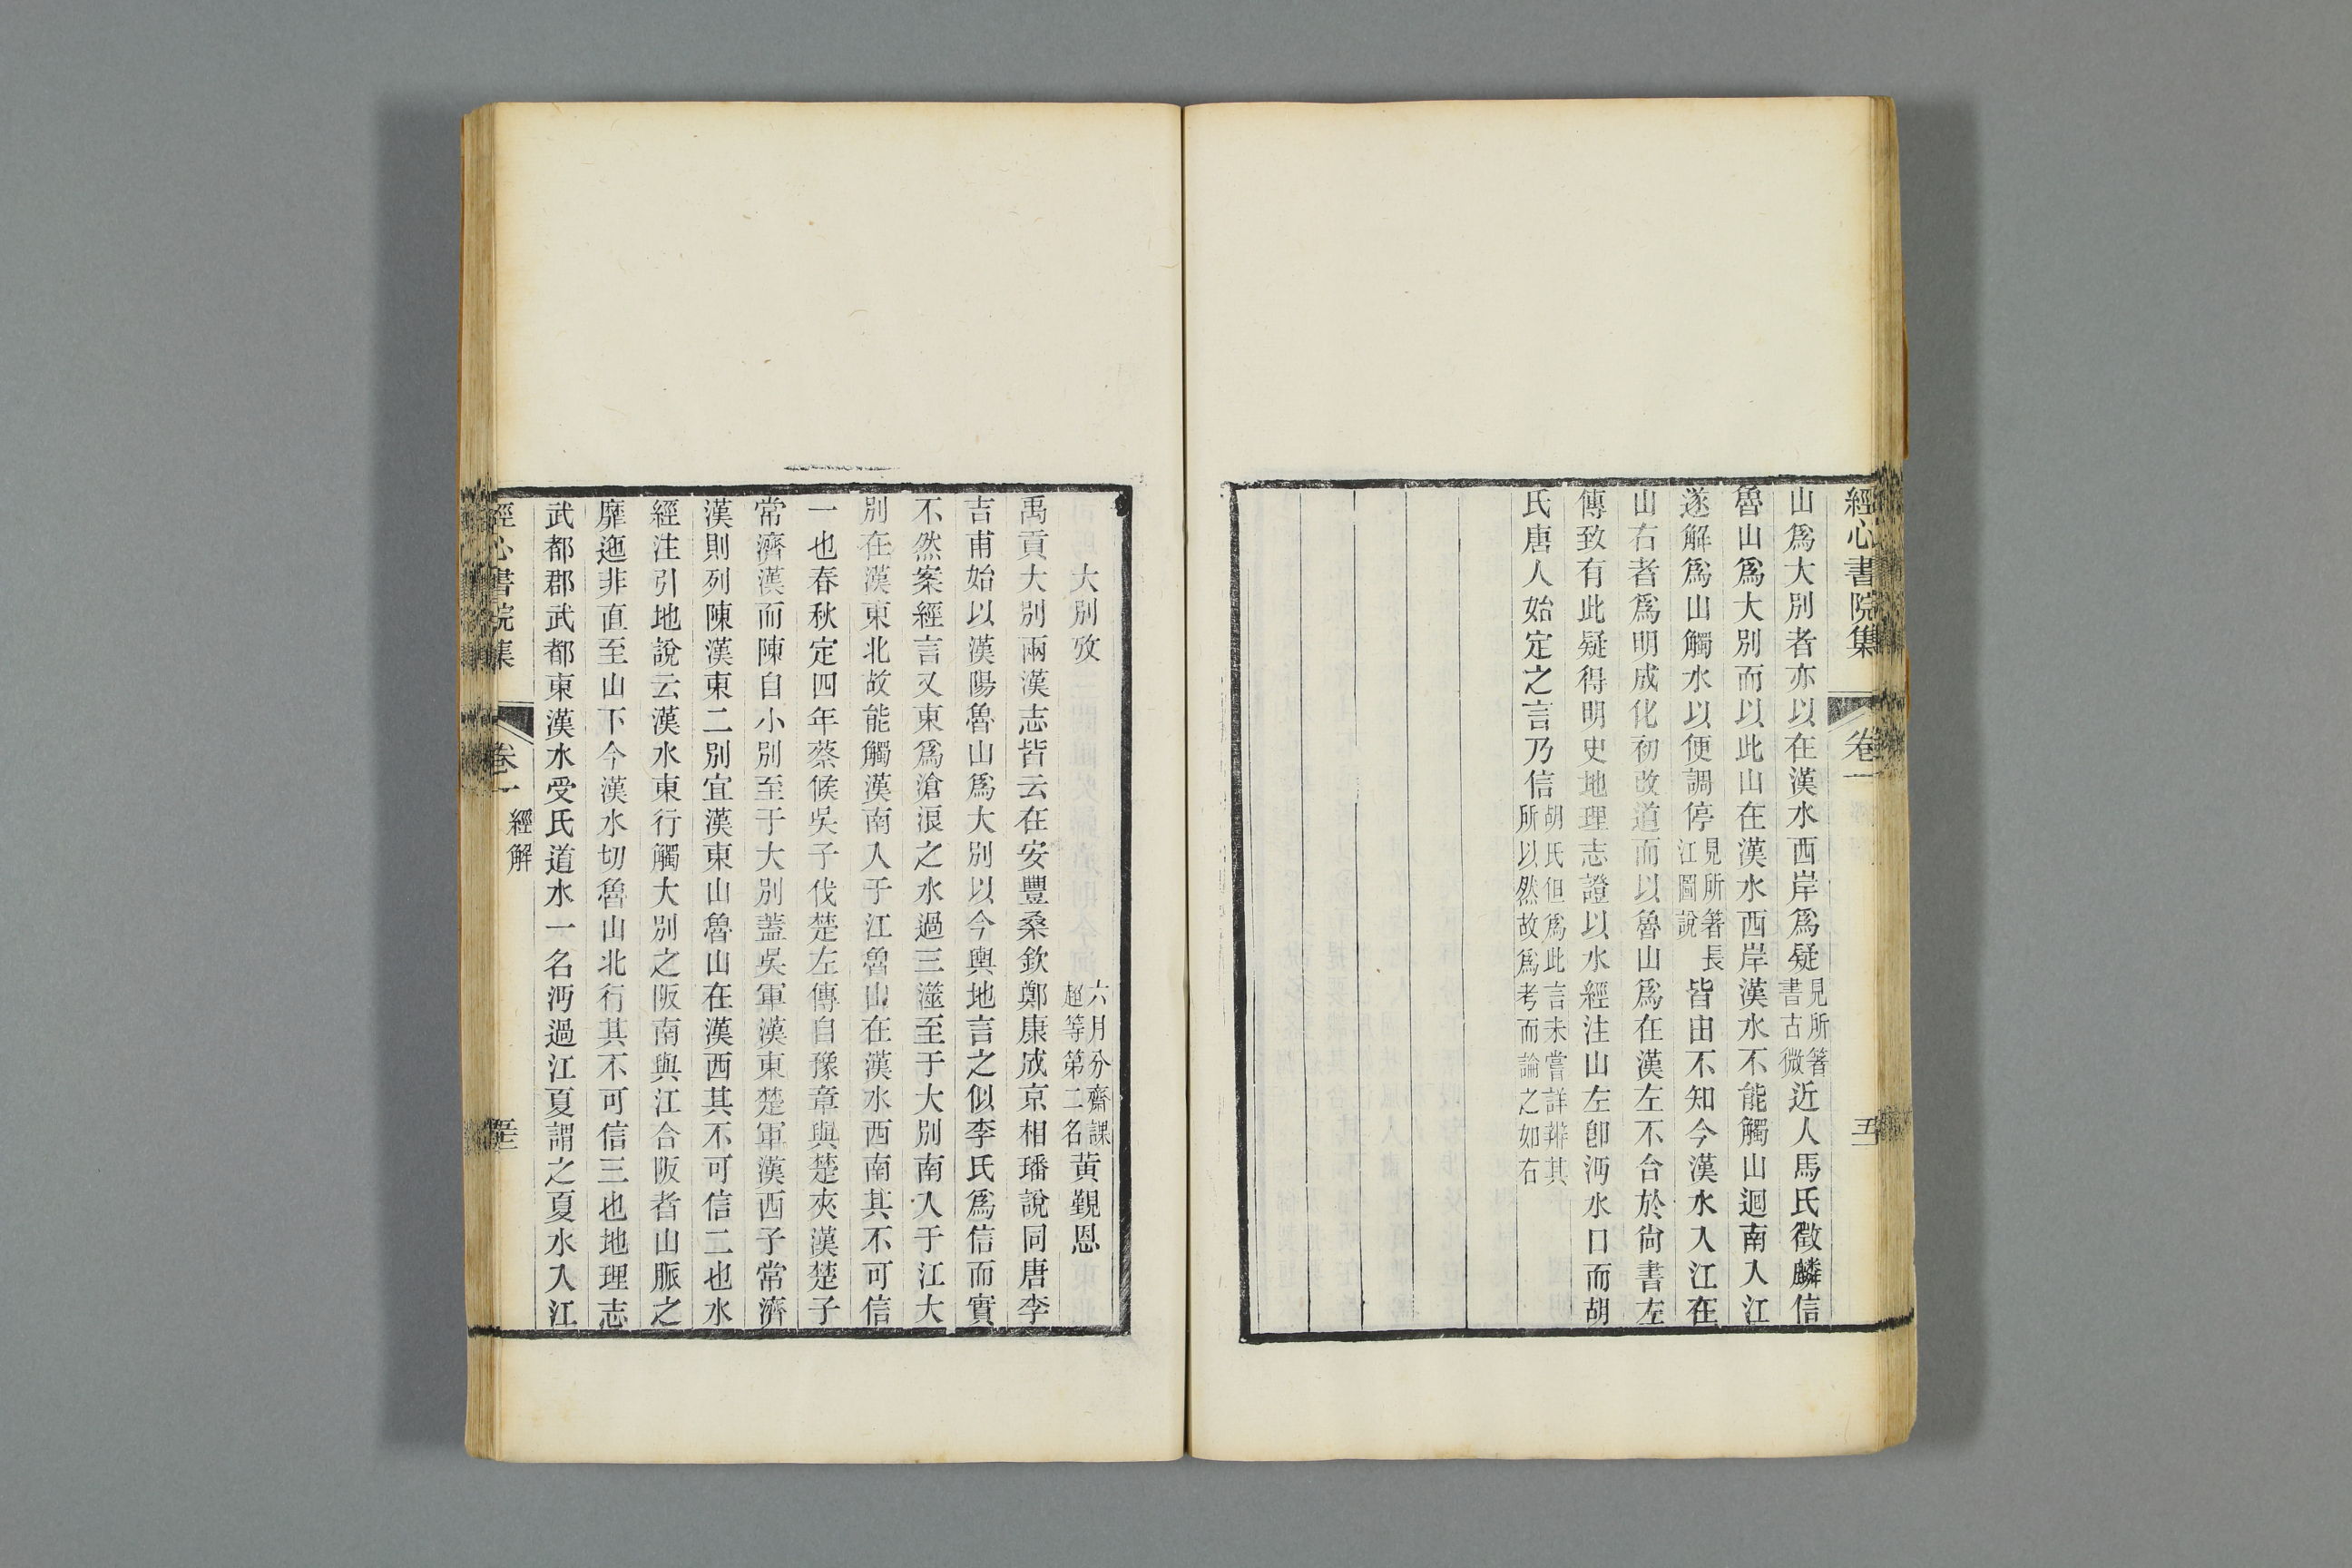 經心書院集 卷一
五十
山爲大別者亦以在漢水西岸爲疑見所箸書古微近人馬氏徵麟信
魯山爲大別而以此山在漢水西岸漢水不能觸山迴南入江
遂解爲山觸水以便調停見所箸長江圖說皆由不知今漢水入江在
山右者爲明成化初改道而以魯山爲在漢左不合於尙書左
傳致有此疑得明史地理志證以水經注山左卽沔水口而胡
氏唐人始定之言乃信胡氏但爲此言未嘗詳辨其所以然故爲考而論之如右
大別攷
六月分齋課超等第二名黃覲恩
禹貢大別兩漢志皆云在安豐桑欽鄭康成京相璠說同唐李
吉甫始以漢陽魯山爲大別以今輿地言之似李氏爲信而實
不然案經言又東爲滄浪之水過三澨至于大別南入于江大
別在漢東北故能觸漢南入于江魯山在漢水西南其不可信
一也春秋定四年蔡候吳子伐楚左傳自豫章與楚夾漢楚子
常濟漢而陳自小別至于大別蓋吳軍漢東楚軍漢西子常濟
漢則列陳漢東二別宜漢東山魯山在漢西其不可信二也水
經注引地說云漢水東行觸大別之阪南與江合阪者山脈之
靡迤非直至山下今漢水切魯山北行其不可信三也地理志
武都郡武都東漢水受氐道水一名沔過江夏謂之夏水入江
經心書院集 卷一 經解